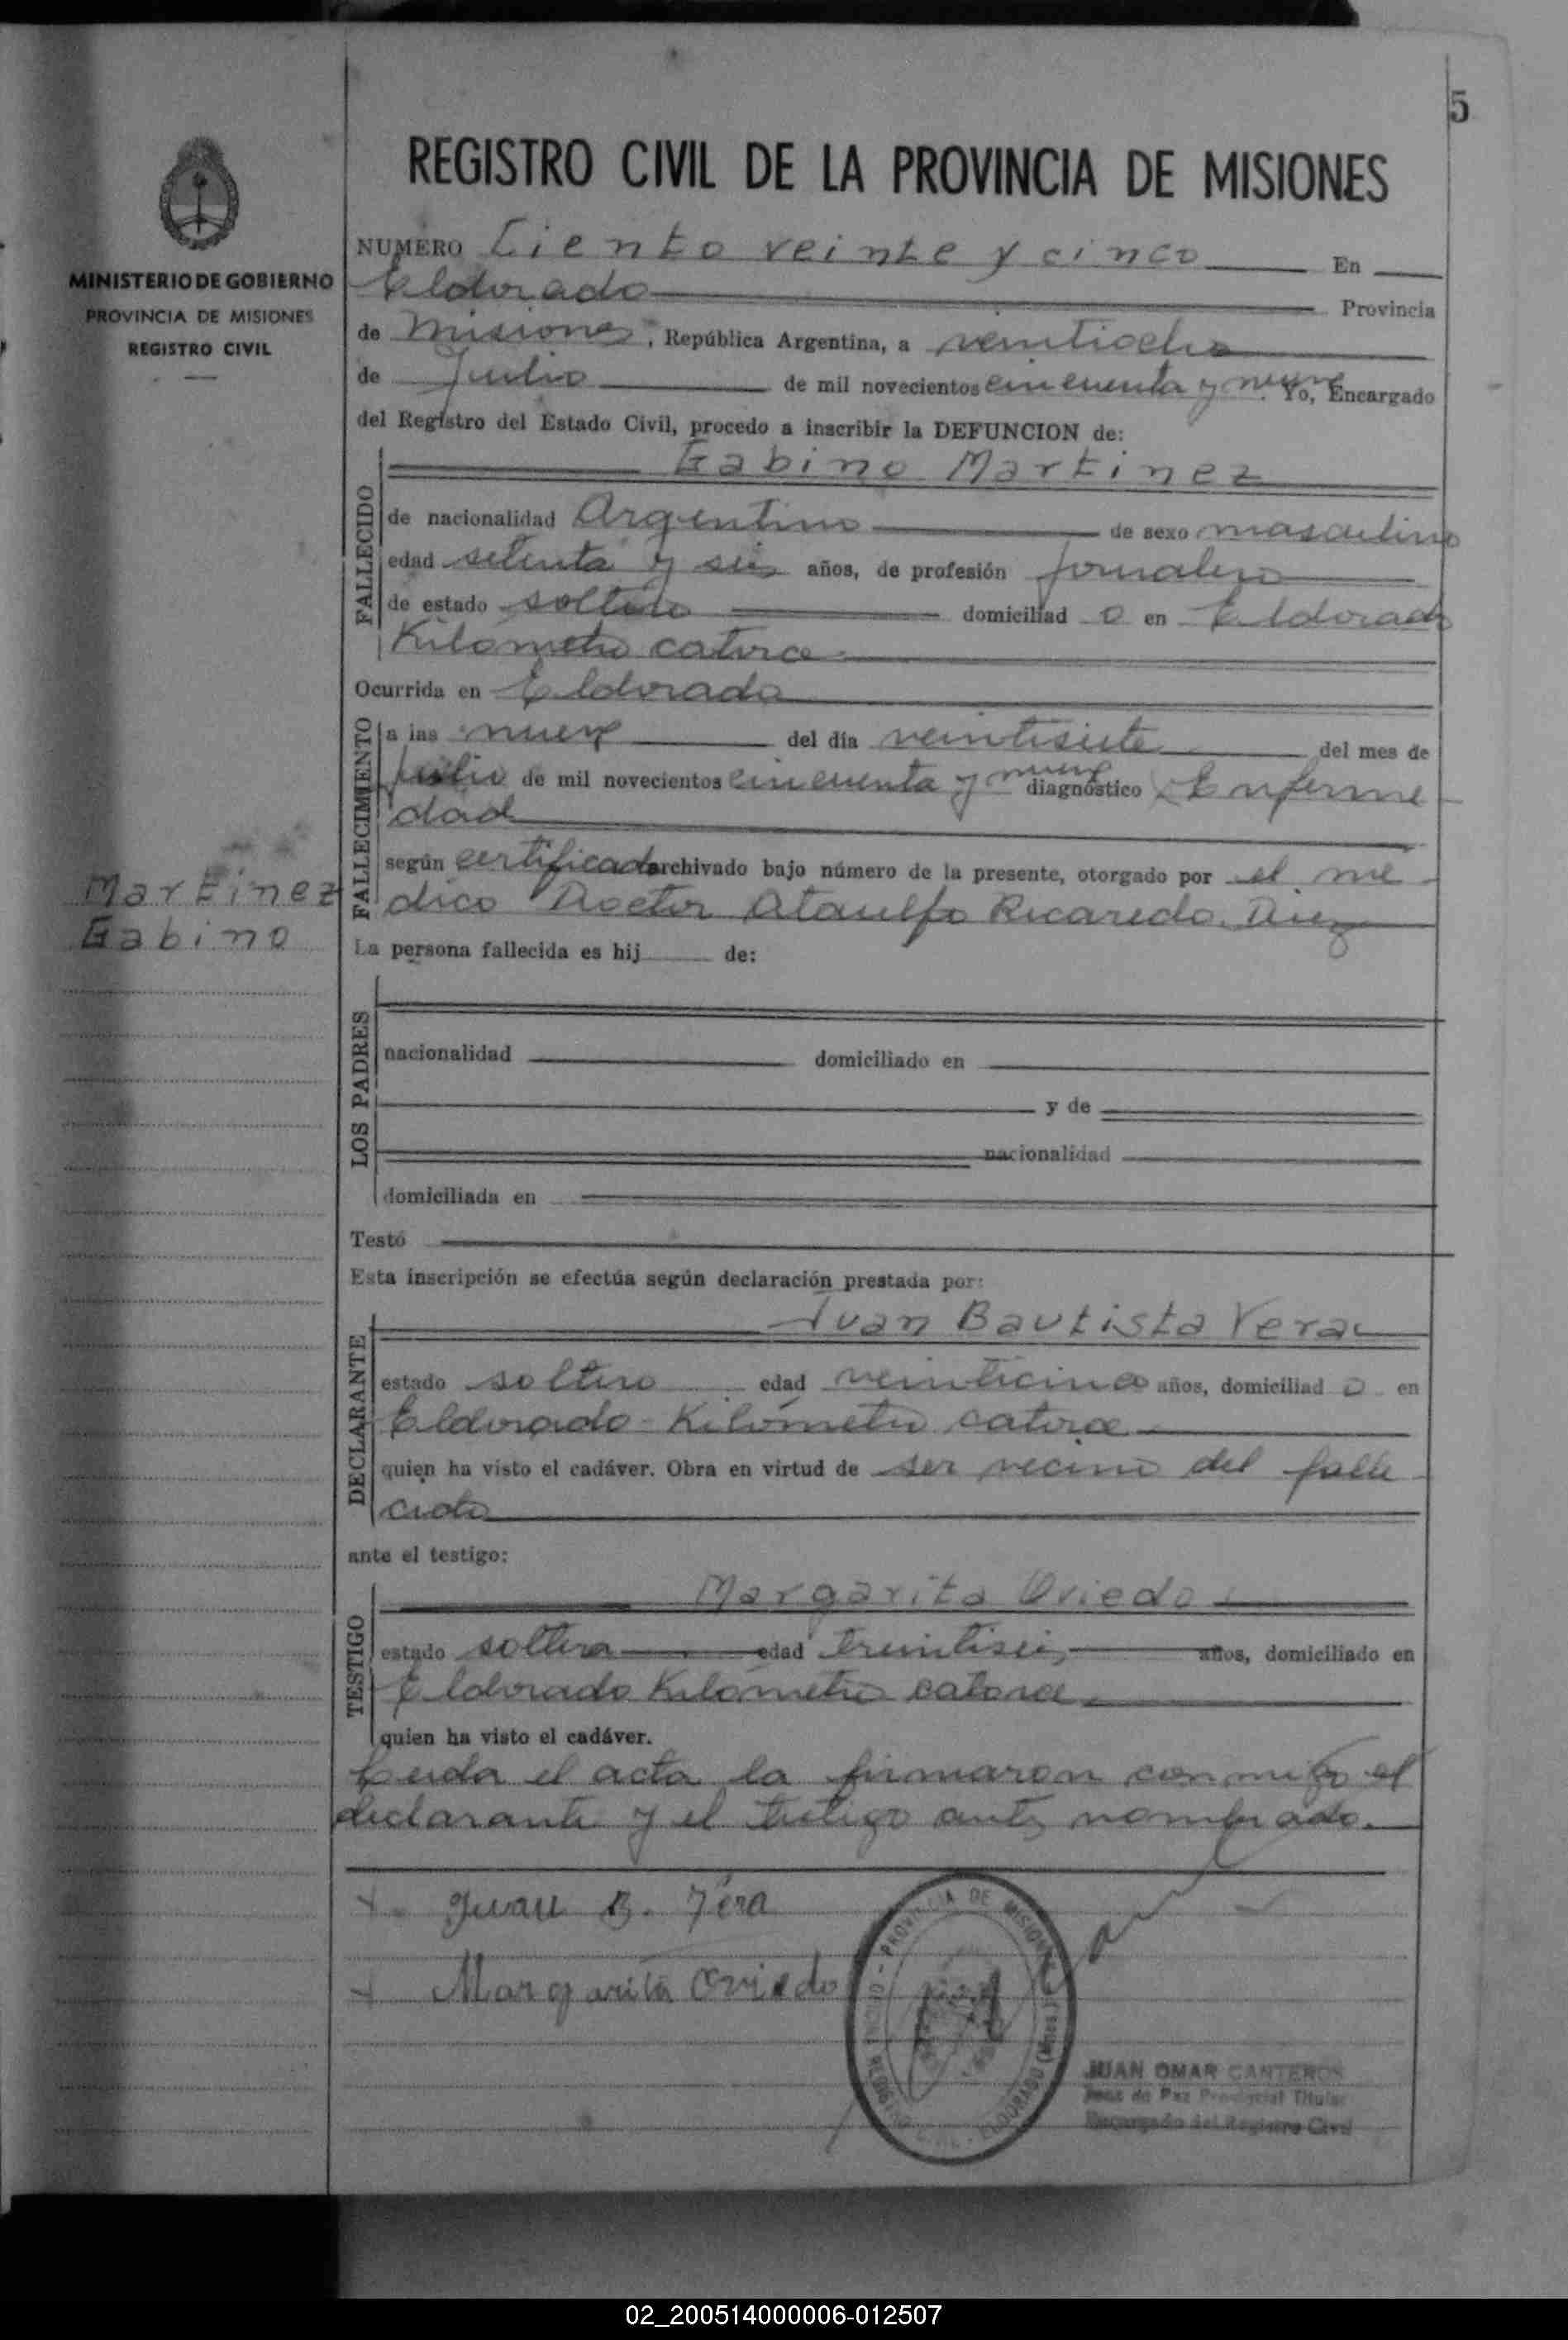 5
REGISTRO CIVIL DE LA PROVINCIA DE MISIONES
MINISTERIO DE GOBIERNO
PROVINCIA DE MISIONES
REGISTRO CIVIL
Martinez
Gabino
NUMERO Ciento veinte y cinco En
Eldorado Provincia
de Misiones, República Argentina, a veintiocho
de Julio de mil novecientos cincuenta y nueve. Yo, Encargado
del Registro del Estado Civil, procedo a inscribir la DEFUNCION de:
Gabino Martinez
FALLECIDO
de nacionalidad Argentino de sexo masculino
edad setenta y seis años, de profesión jornalero
de estado soltero domiciliad o en Eldorado
Kilómetro catorce
Ocurrida en Eldorado
FALLECIMIENTO
a las nueve del día veintisiete del mes de
Julio de mil novecientos cincuenta y nueve diagnóstico Enferme
dad
según certificado archivado bajo número de la presente, otorgado por el mé
dico Doctor Ataulfo Ricaredo Diez
La persona fallecida es hij de:
LOS PADRES
nacionalidad domiciliado en
y de
nacionalidad
domiciliada en
Testó
Esta inscripción se efectúa según declaración prestada por:
Juan Bautista Vera
DECLARANTE
estado soltero edad veinticinco años, domiciliad o en
Eldorado - Kilómetro catorce
quien ha visto el cadáver. Obra en virtud de ser vecino del falle
cido
ante el testigo:
Margarita Oviedo
TESTIGO
estado soltera edad treintiseis años, domiciliado en
Eldorado Kilómetro catorce
quien ha visto el cadáver.
Leida el acta la firmaron conmigo el
declarante y el testigo antes nombrado.
Juan B. Vera
Margarita Oviedo
PROVINCIA DE MISIONES
REGISTRO CIVIL - ELDORADO (Mnes.)
JUAN OMAR CANTEROS
Juez de Paz Provincial Titular
Encargado del Registro Civil
02_200514000006-012507